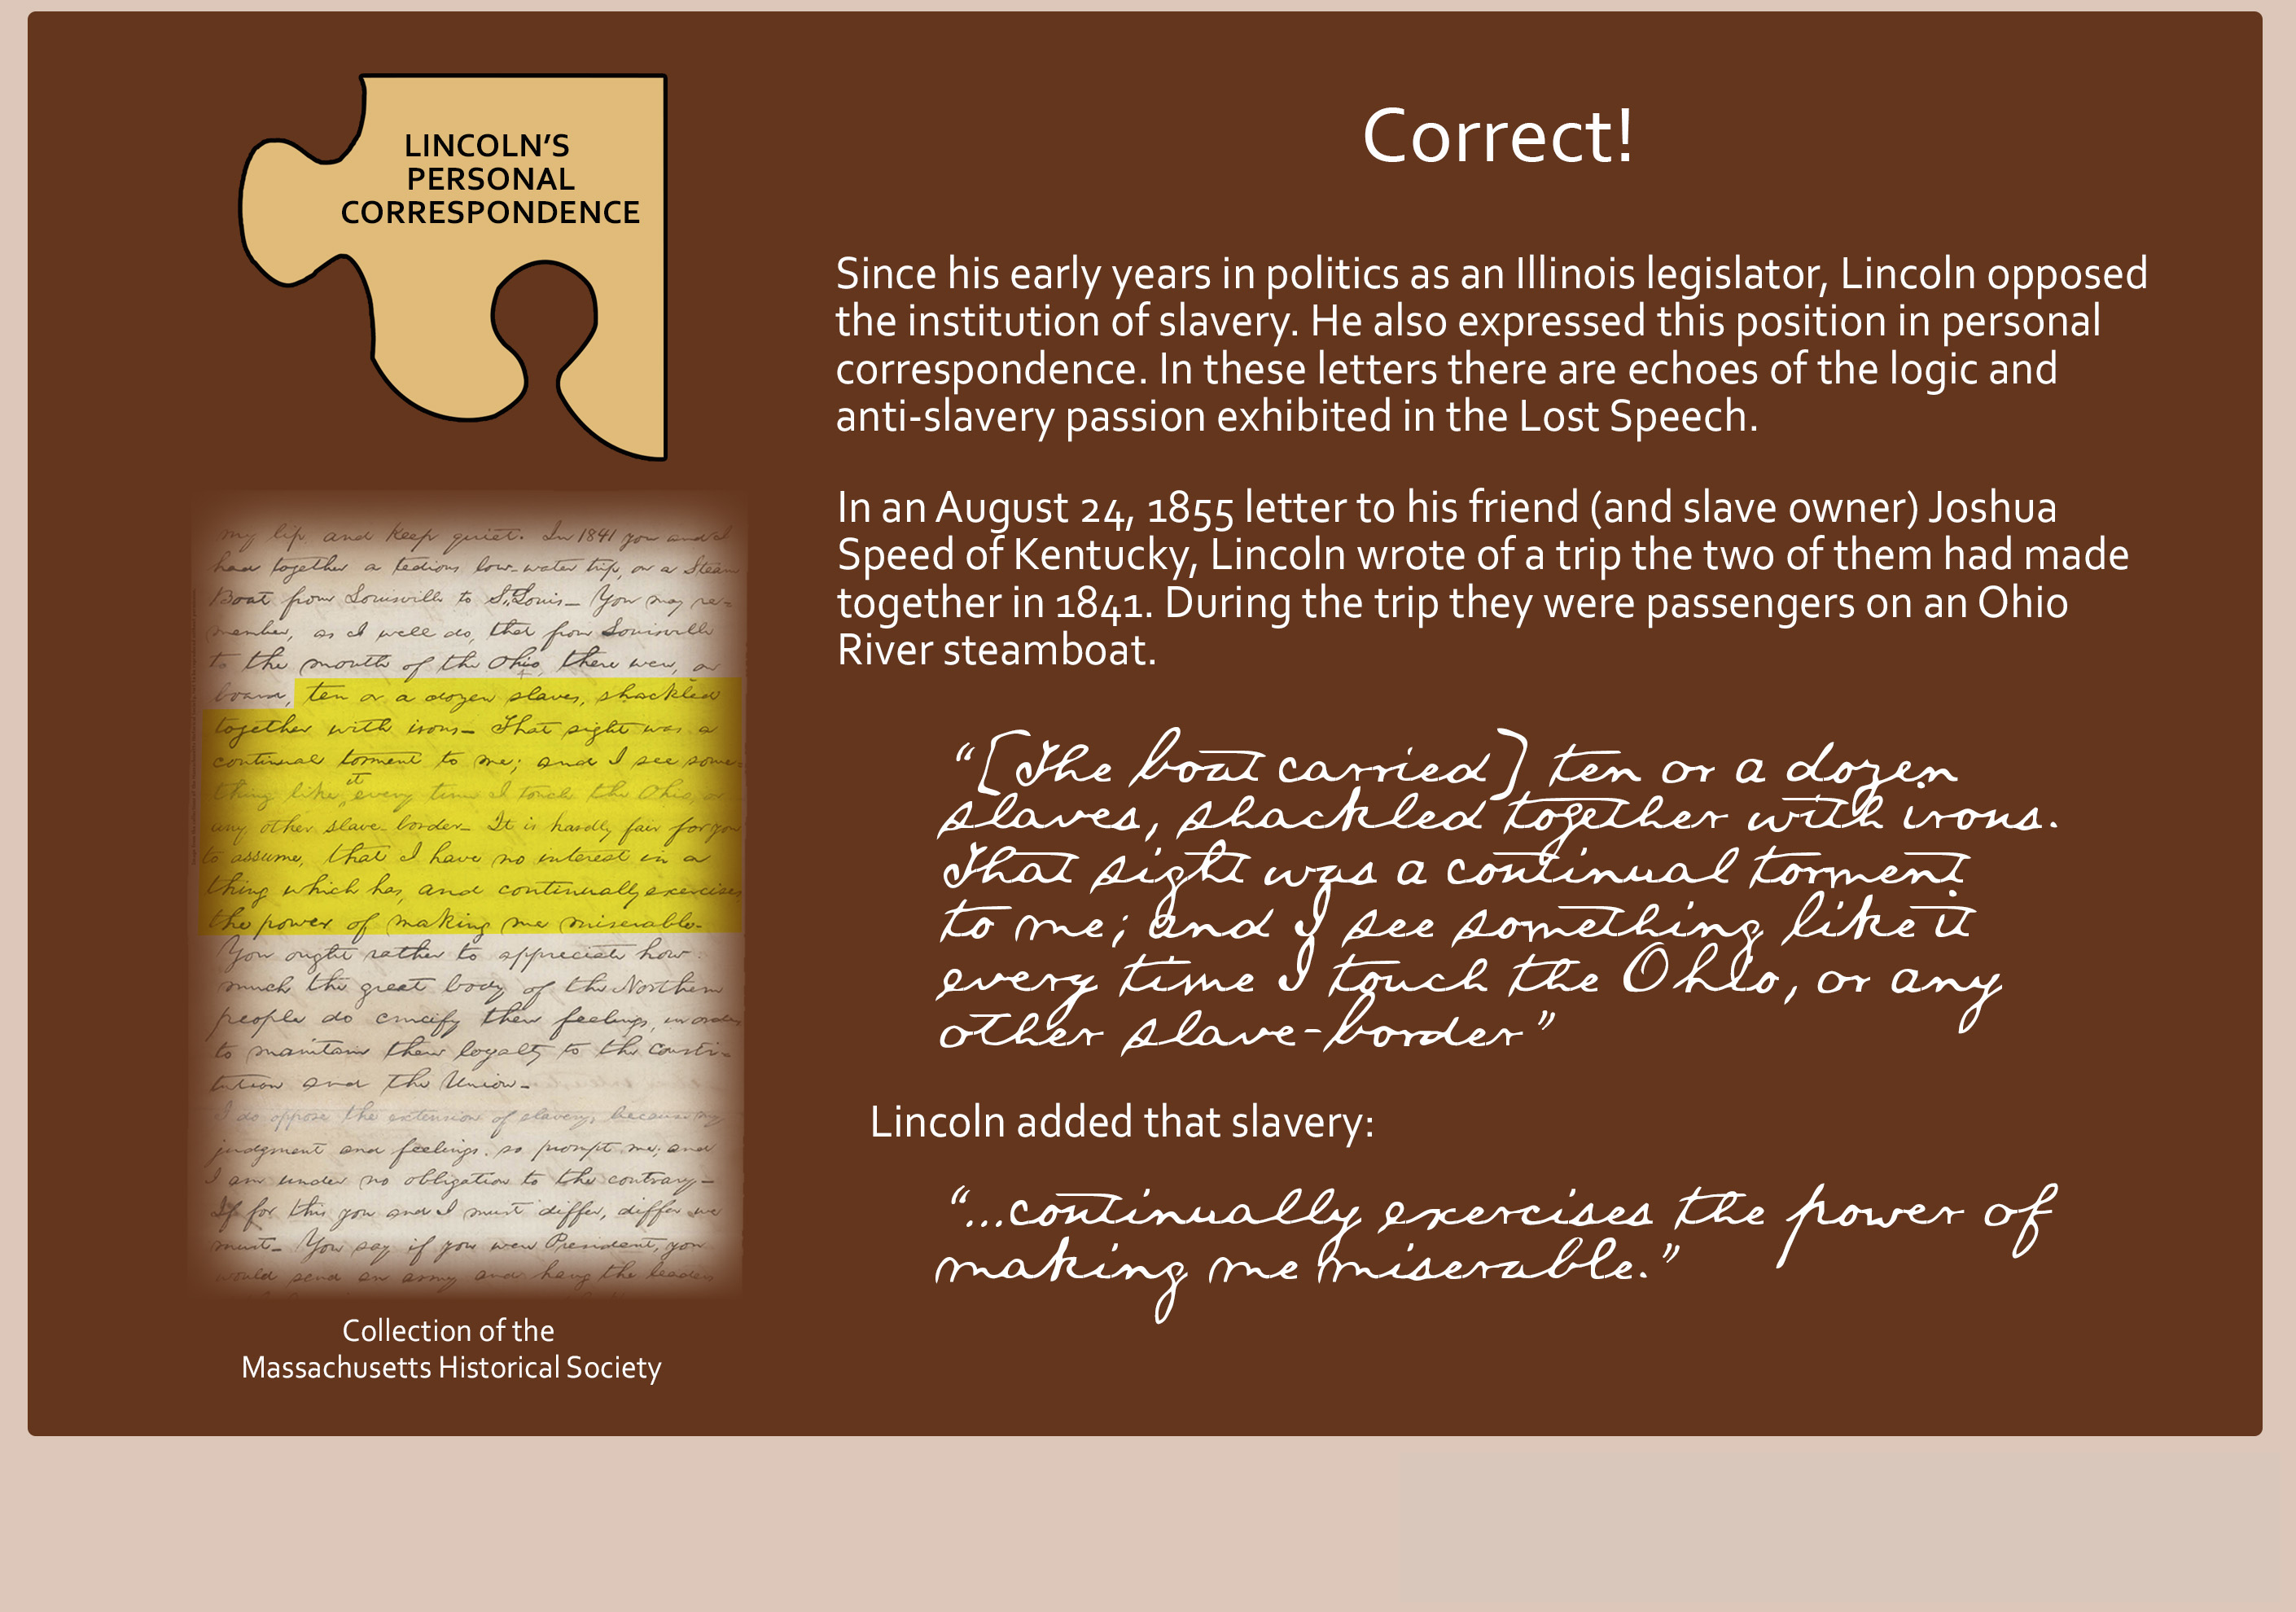 LINCOLN’S
PERSONAL
CORRESPONDENCE
my lip and keep quiet. In 1841 you and I
had together a tedious low-water trip, on a Steam
Boat from Louisville to St. Louis— You may re=
member, as I well do, that from Louisville
to the mouth of the Ohio, there were, on
board, ten or a dozen slaves, shackled
together with irons— That sight was a
continual torment to me; and I see some=
thing like it every time I touch the Ohio, or
any other slave-border— It is hardly fair for you
to assume, that I have no interest in a
thing which has, and continually exercises,
the power of making me miserable-
You ought rather to appreciate how
much the great body of the Northern
people do crucify their feelings, in order
to maintain their loyalty to the consti-
tution and the Union-
I do oppose the extension of slavery, because my
judgment and feelings so prompt me; and
I am under no obligation to the contrary—
If for this you and I must differ, differ we
must— You say if you were President, you
would send an army and hang the leaders
Collection of the
Massachusetts Historical Society
Correct!
Since his early years in politics as an Illinois legislator, Lincoln opposed
the institution of slavery. He also expressed this position in personal
correspondence. In these letters there are echoes of the logic and
anti-slavery passion exhibited in the Lost Speech.
In an August 24, 1855 letter to his friend (and slave owner) Joshua
Speed of Kentucky, Lincoln wrote of a trip the two of them had made
together in 1841. During the trip they were passengers on an Ohio
River steamboat.
“[The boat carried] ten or a dozen
slaves, shackled together with irons.
That sight was a continual torment
to me; and I see something like it
every time I touch the Ohio, or any
other slave-border”
Lincoln added that slavery:
“...continually exercises the power of
making me miserable.”